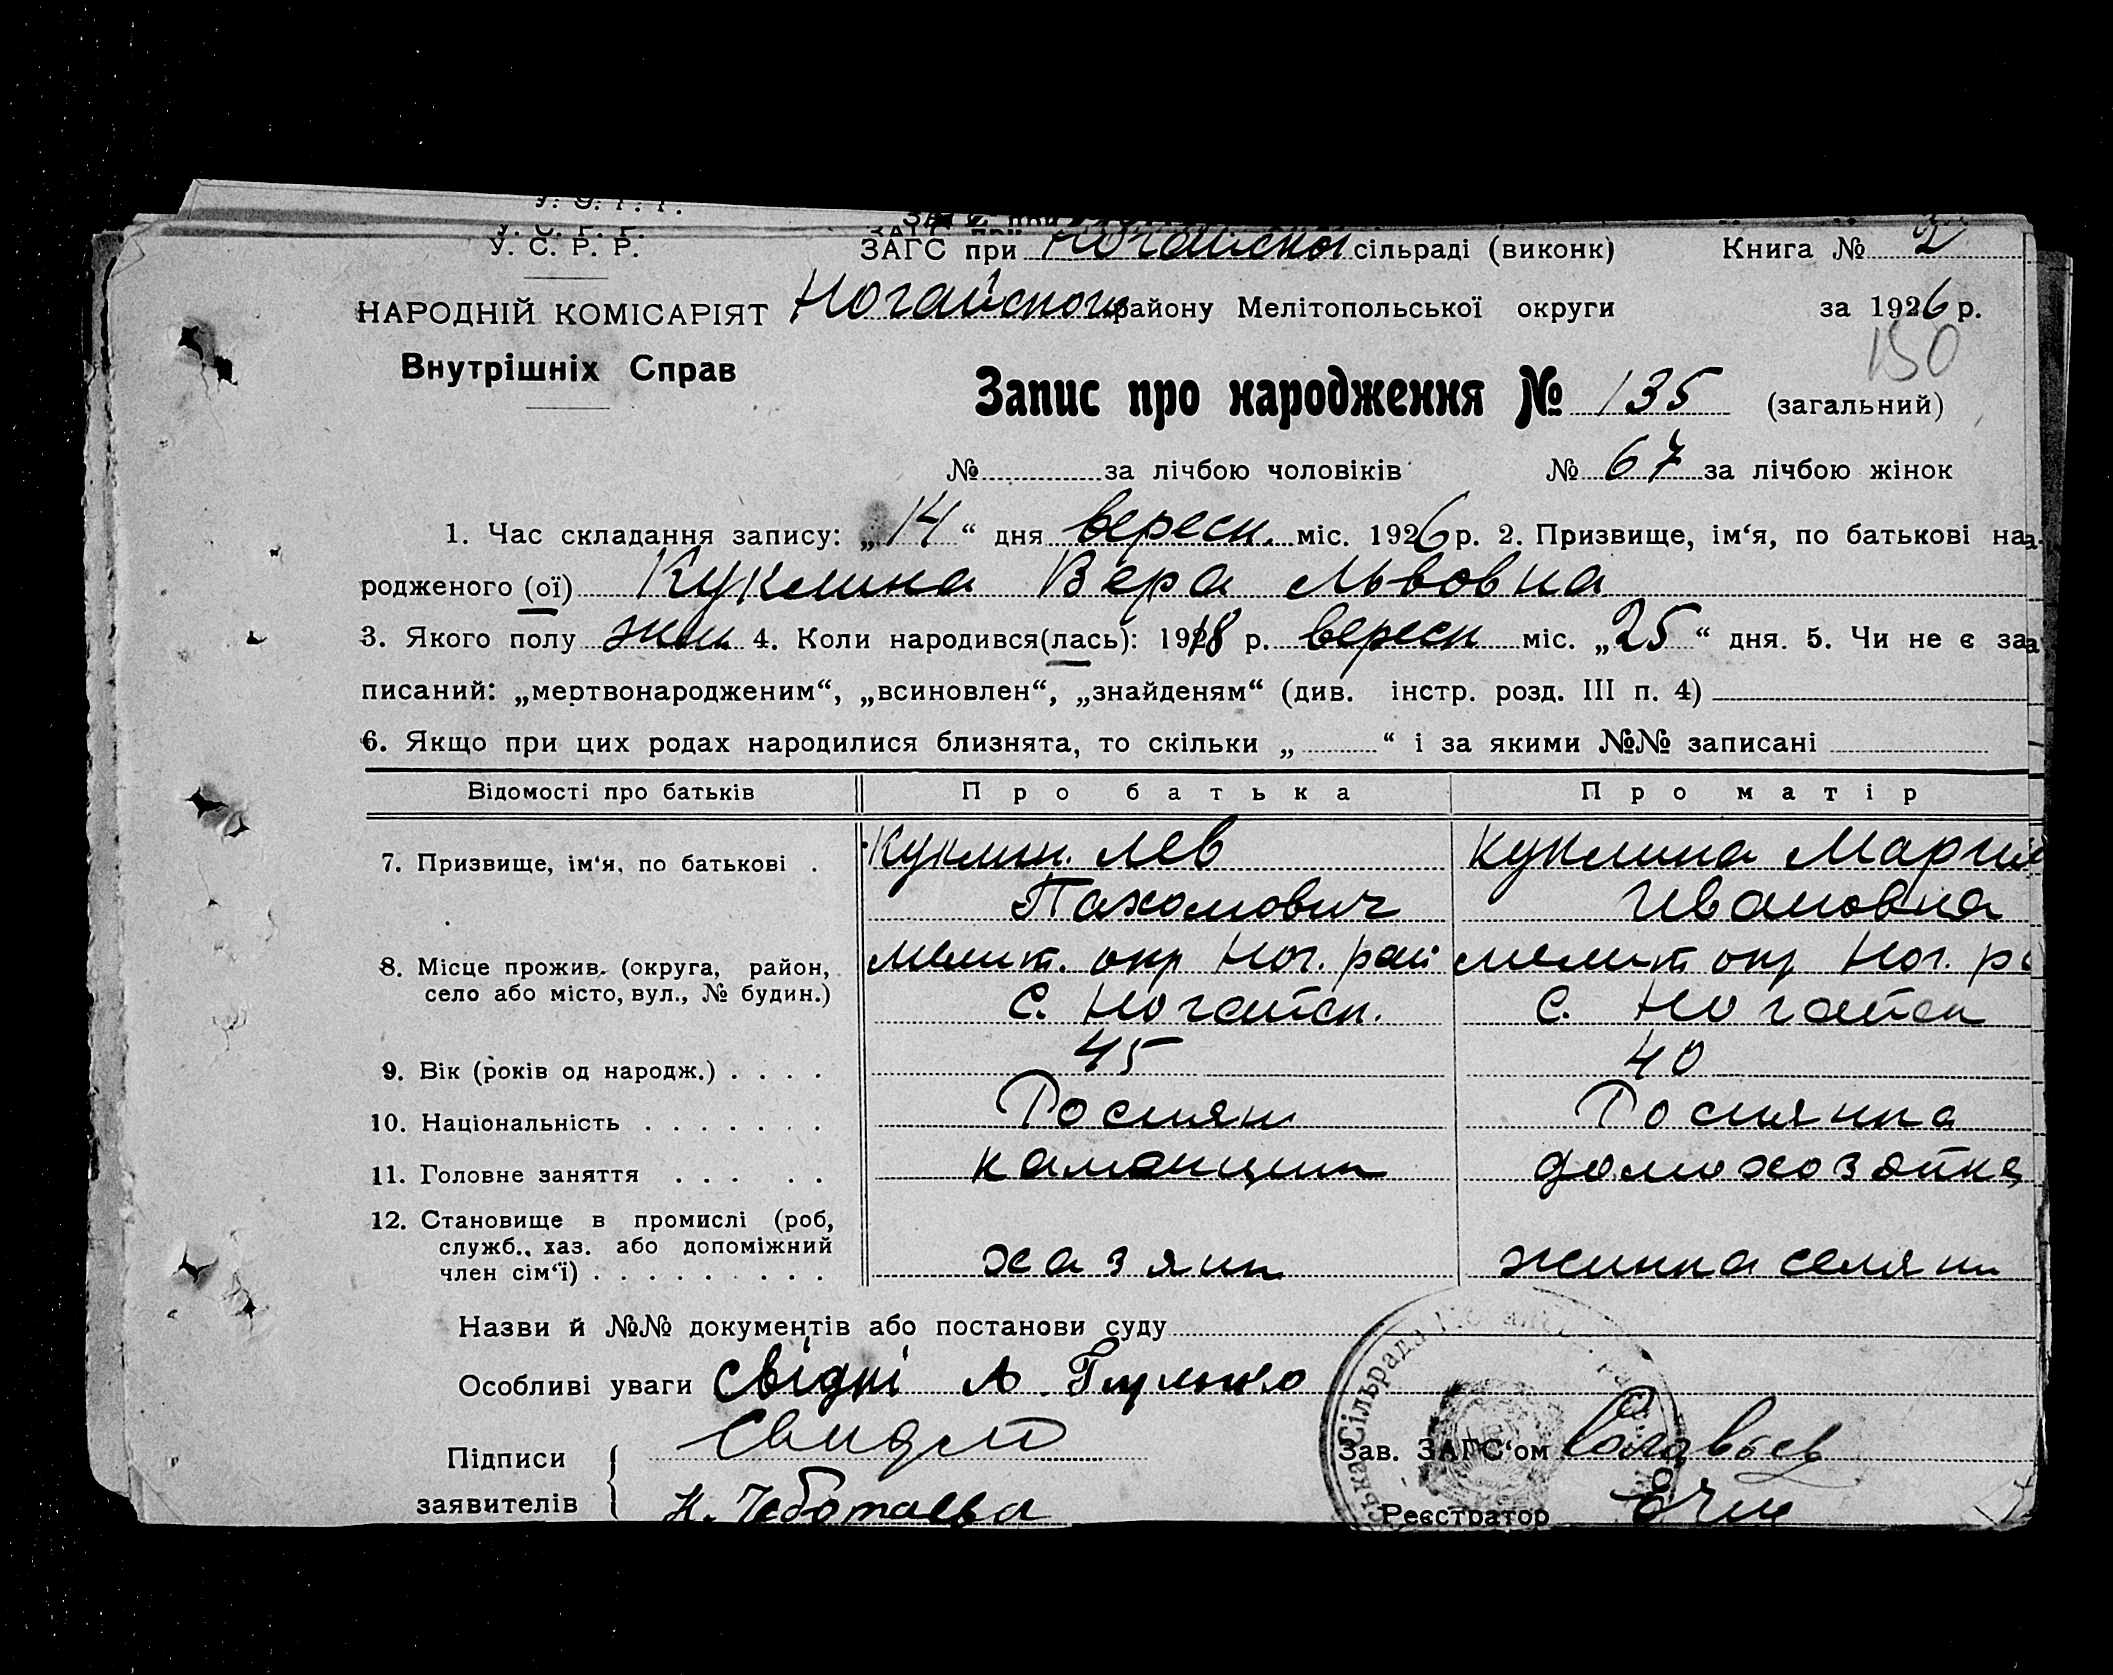 У. С. Р. Р.
ЗАГС при Ногайской сільраді (виконк) Книга № 2
НАРОДНІЙ КОМІСАРІЯТ Ногайского району Мелітопольської округи за 1926 р.
150
Внутрішніх Справ
Запис про народження № 135 (загальний)
№ за лічбою чоловіків № 67 за лічбою жінок
1. Час складання запису: „14“ дня вересн. міс. 1926 р. 2. Призвище, ім‘я, по батькові на-
родженого (ої) Куклина Вера Львовна
3. Якого полу жин 4. Коли народився(лась): 1918 р. вересн міс. „25“ дня. 5. Чи не є за-
писаний: „мертвонародженим“, „всиновлен“, „знайденям“ (див. інстр. розд. III п. 4)
6. Якщо при цих родах народилися близнята, то скільки „ “ і за якими №№ записані
Відомості про батьків Про батька Про матір
7. Призвище, ім‘я, по батькові . Куклин. Лев Куклина Мария
Пахомович Ивановна
8. Місце прожив. (округа, район, село або місто, вул., № будин.) Мелит. окр Ног. рай Мелит окр Ног. ра
С. Ногайск. С. Ногайск
9. Вік (років од народж.) . . . . 45 40
10. Національність . . . . . . . Росиян Росиянка
11. Головне заняття . . . . . каманщик домохозяйка
12. Становище в промислі (роб, служб., хаз. або допоміжний член сім‘ї) . . . . . . . . . хазяин жинка селянин
Назви й №№ документів або постанови суду
Особливі уваги свідкі А.
Підписи Зав. ЗАГС‘ом Соловьев
заявителів Н. Чеботаева Реєстратор